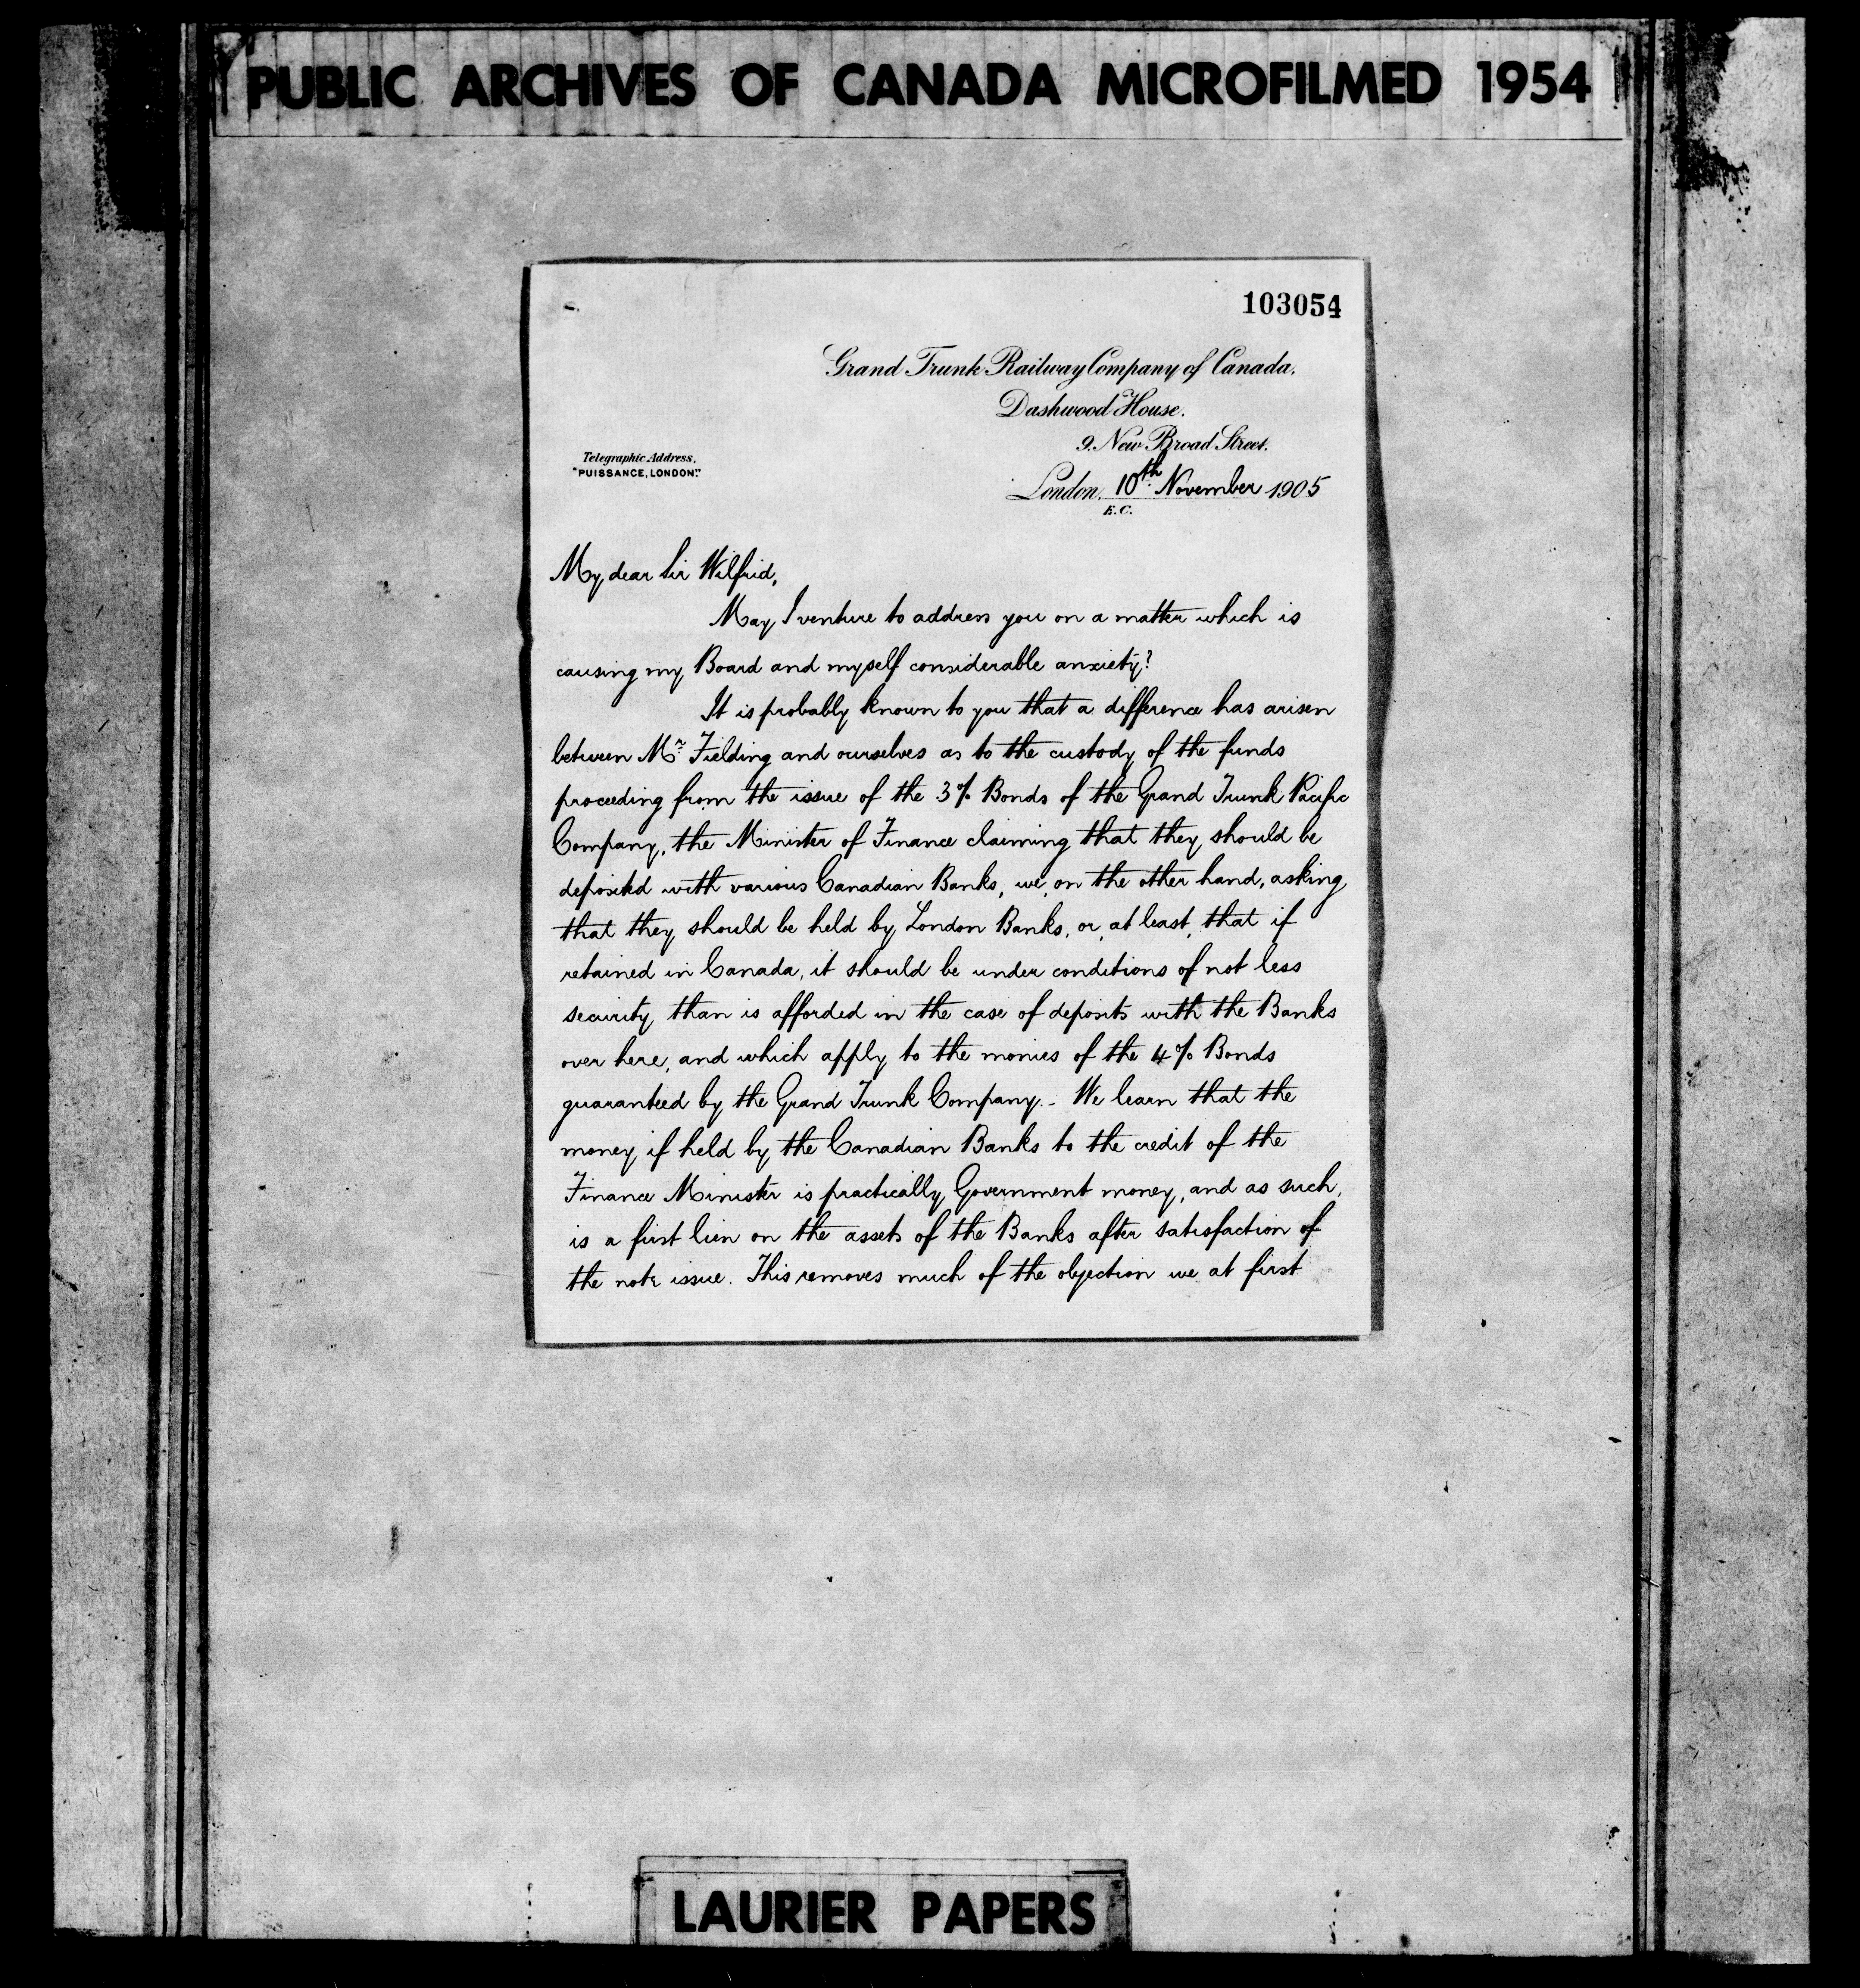 PUBLIC ARCHIVES OF CANADA MICROFILMED 1954
103054
Grand Trunk Railway Company of Canada.
Dashwood House.
9. New Broad Street.
Telegraphic Address,
"PUISSANCE, LONDON."
London. 10th November 1905
E.C.
My dear Sir Wilfrid,
May I venture to address you on a matter which is
causing my Board and myself considerable anxiety?
It is probably known to you that a difference has arisen
between Mr. Fielding and ourselves as to the custody of the funds
proceeding from the issue of the 3% Bonds of the Grand Trunk Pacific
Company, the Minister of Finance claiming that they should be
deposited with various Canadian Banks, we, on the other hand, asking
that they should be held by London Banks, or, at least, that if
retained in Canada, it should be under conditions of not less
security than is afforded in the case of deposits with the Banks
over here, and which apply to the monies of the 4% Bonds
guaranteed by the Grand Trunk Company. - We learn that the
money if held by the Canadian Banks to the credit of the
Finance Minister is practically Government money, and as such,
is a first lien on the assets of the Banks after satisfaction of
the note issue. This removes much of the objection we at first
LAURIER PAPERS